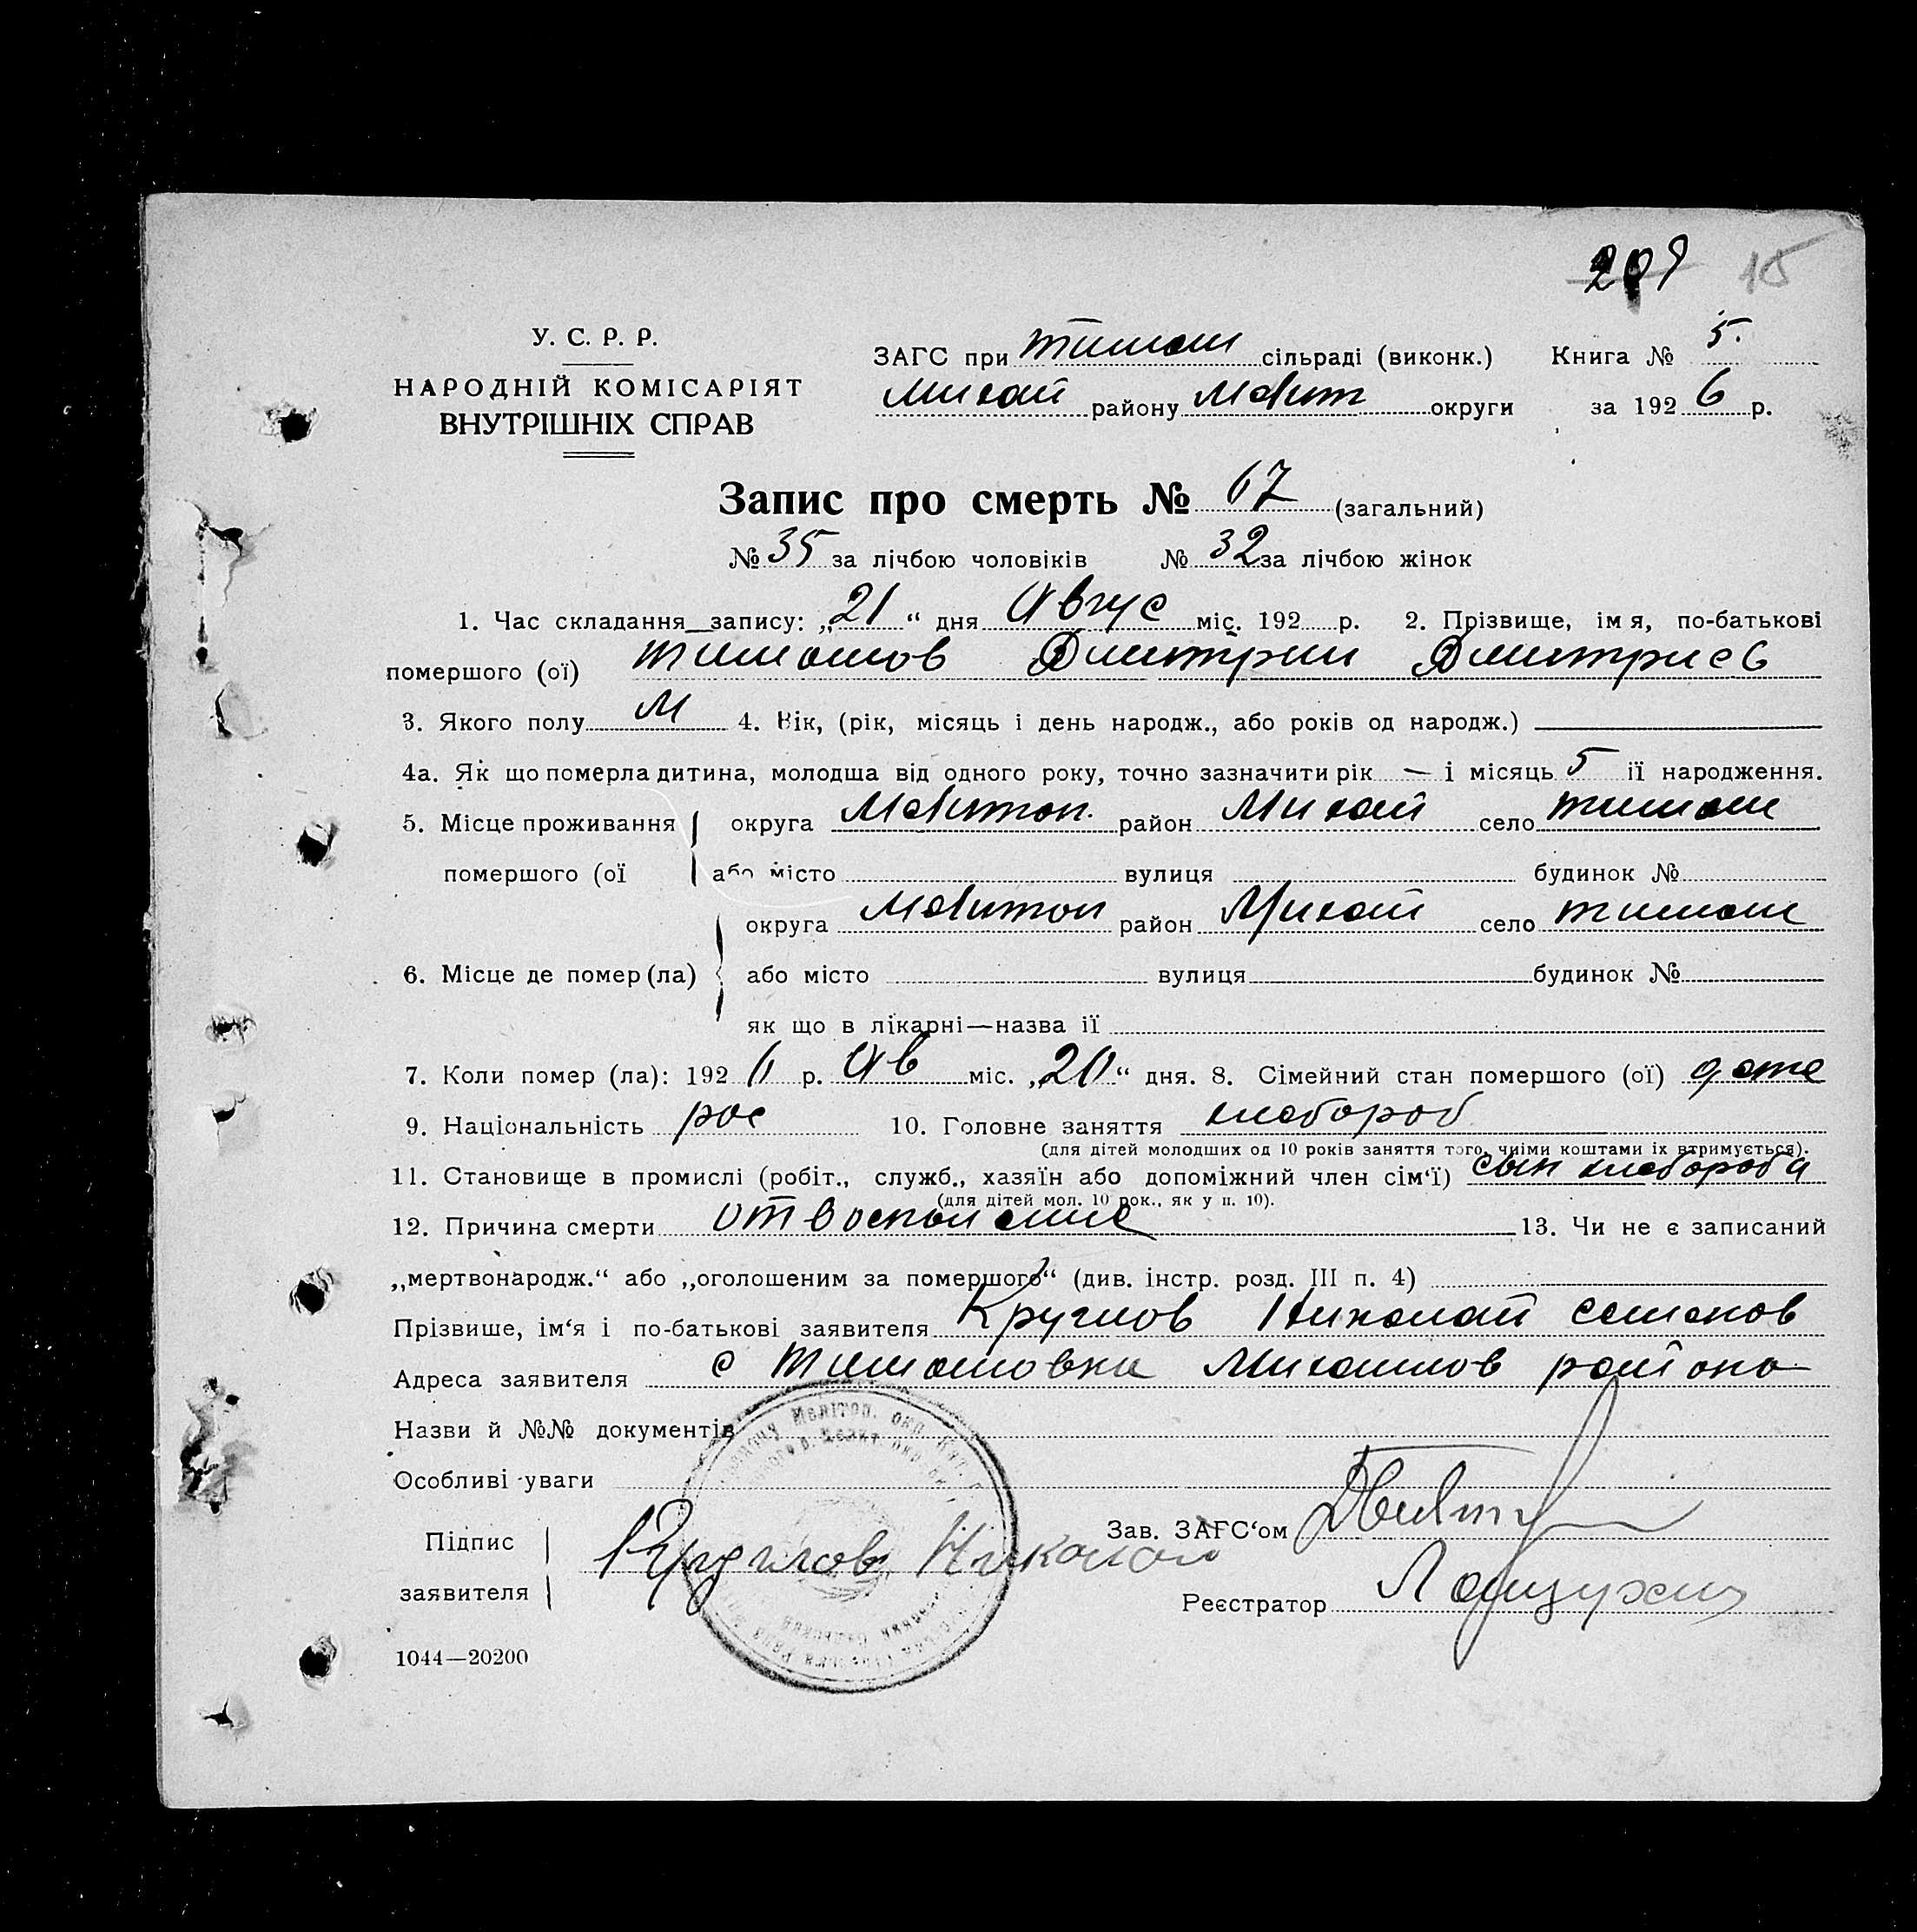 209 15
У. С. Р. Р.
НАРОДНІЙ КОМІСАРІЯТ
ВНУТРІШНІХ СПРАВ
ЗАГС при Тимош сільраді (виконк.) Книга № 5.
Михай району Мелит округи за 1926 р.
Запис про смерть № 67 (загальний)
№ 35 за лічбою чоловіків № 32 за лічбою жінок
1. Час складання запису: „21“ дня Авгус міс. 192 р. 2. Прізвище, імя, по-батькові
помершого (ої) Тимошов Дмитрий Дмитриев
3. Якого полу М 4. Вік, (рік, місяць і день народж., або років од народж.)
4а. Як що померла дитина, молодша від одного року, точно зазначити рік — і місяць 5 ії народження.
5. Місце проживання округа Мелитоп. район Михай село Тимош
помершого (ої або місто вулиця будинок №
округа Мелитоп район Михай село Тимош
6. Місце де помер (ла) або місто вулиця будинок №
як що в лікарні—назва ії
7. Коли помер (ла): 1926 р. Ав міс. „20“ дня. 8. Сімейний стан помершого (ої) дите
9. Національність рос 10. Головне заняття хлебороб
(для дітей молодших од 10 років заняття того, чиїми коштами їх втримується).
11. Становище в промислі (робіт., служб., хазяїн або допоміжний член сім‘ї) сын хлебороба
(для дітей мол. 10 рок., як у п. 10).
12. Причина смерти от восполение 13. Чи не є записаний
„мертвонародж.“ або „оголошеним за помершого“ (див. інстр. розд. III п. 4)
Прізвище, ім‘я і по-батькові заявителя Круглов Николай Семонов
Адреса заявителя с Тимошовки Михайлов района
Назви й №№ документів
Особливі уваги
Підпис
заявителя
Круглов Николай
Зав. ЗАГС‘ом
Реєстратор
1044—20200